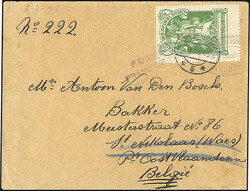 No. 222.
Mr. Antoon Van Den Bosch.
Bakker
Meesterstraat No 86
St. Nikolaas (Waes)
Pr. Oost Vlaanderen
België